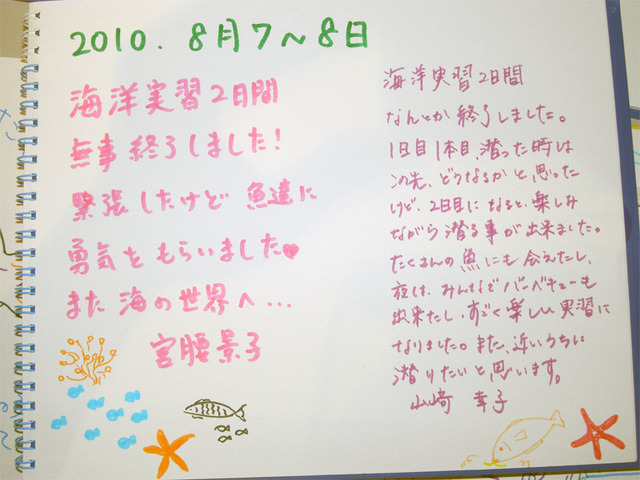 2010. 8月7〜8日
海洋実習2日間
無事終了しました!
緊張したけど魚達に
勇気をもらいました♥
また海の世界へ...
宮腰景子
海洋実習2日間
なんとか終了しました。
1日目1本目、潜った時は
この先、どうなるかと思った
けど、2日目になると、楽しみ
ながら潜る事が出来ました。
たくさんの魚にも会えたし、
夜は、みんなでバーベキューも
出来たし、すごく楽しい実習に
なりました。また、近いうちに
潜りたいと思います。
山崎 幸子